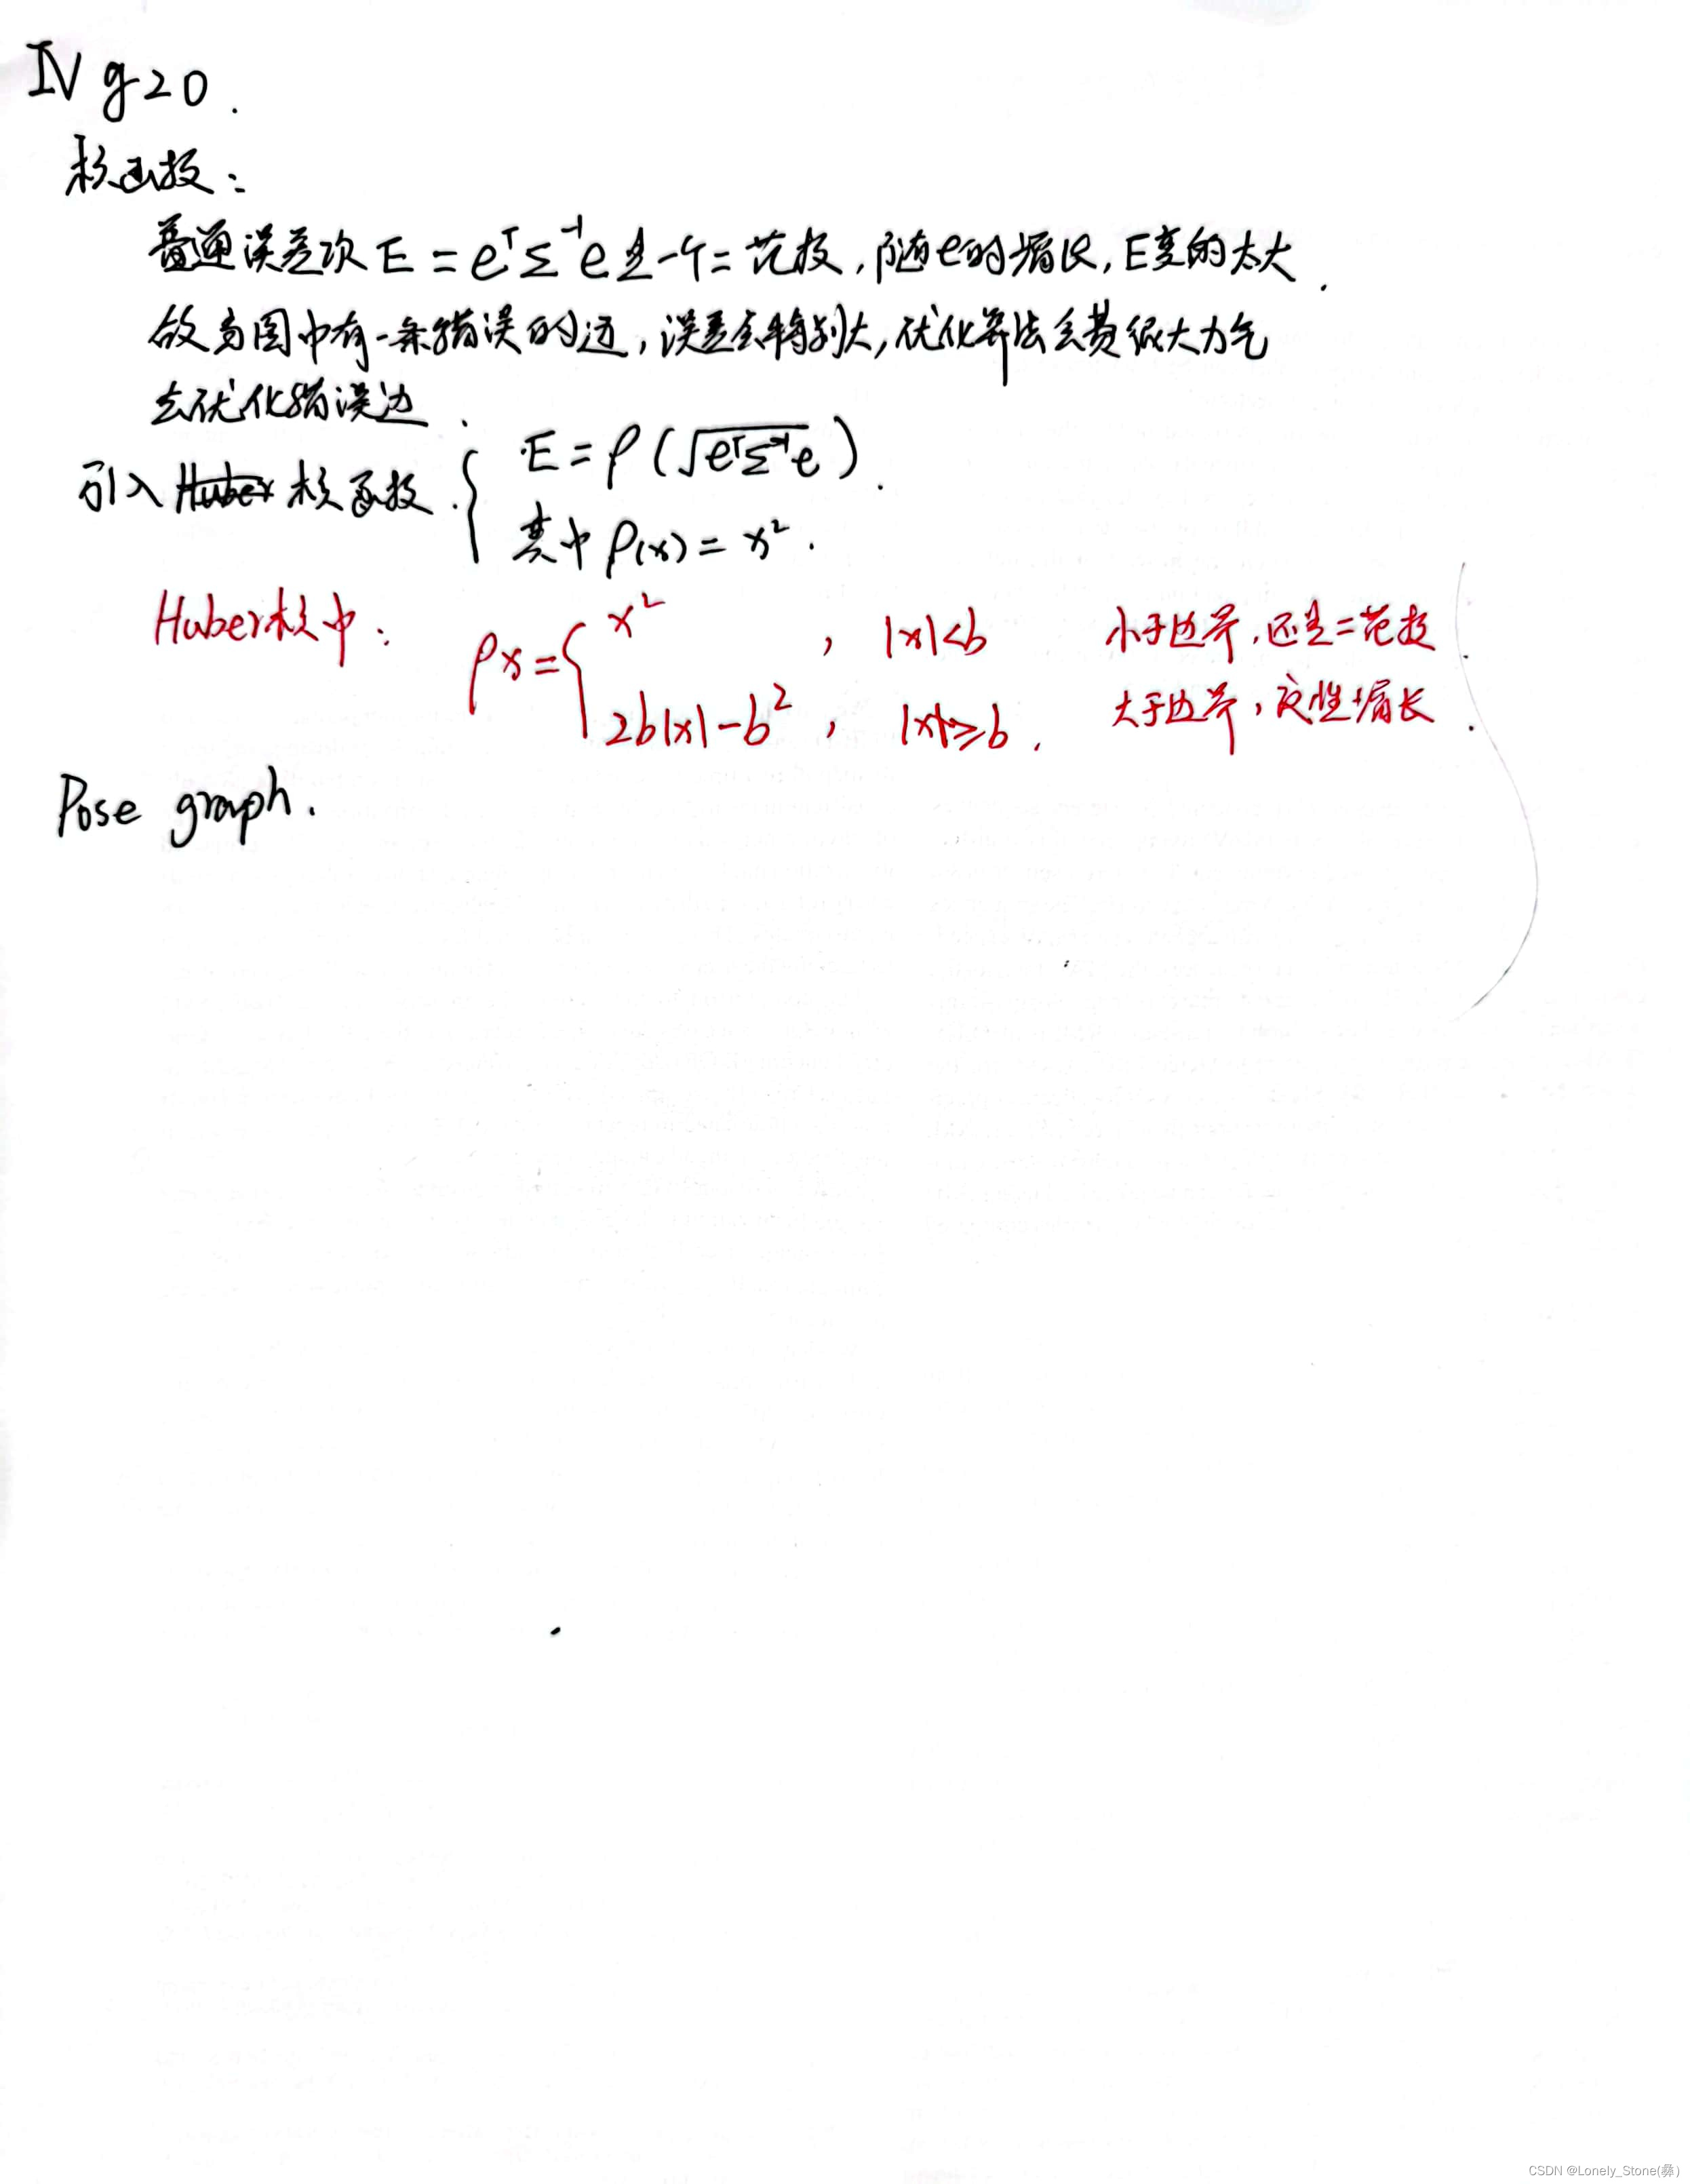 IV g2o.
核函数：
普通误差项 E = eᵀΣ⁻¹e 是一个二范数，随e的增长，E变的太大.
故当图中有一条错误的边，误差会特别大，优化算法会费很大力气
去优化错误边.
引入 核函数. { E = ρ(√(eᵀΣ⁻¹e)).
其中 ρ(x) = x².
Huber核中： ρx = { x² , |x|<b 小于边界，还是二范数.
2b|x|-b² , |x|≥b. 大于边界，线性增长.
Pose graph.
CSDN @Lonely_Stone(彝)